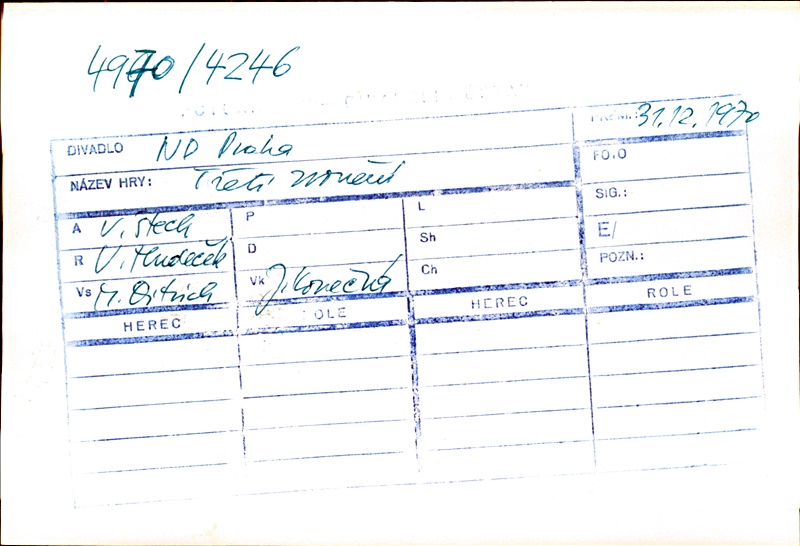 4970/4246
PREM.: 31.12.1970
DIVADLO ND Praha
NÁZEV HRY: Třetí zvonění
FOTO
SIG.:
E/
POZN.:
A V. Štech P L
R V. Hudeček D Sh
Vs M. Ditrich Vk J. Konečná Ch
HEREC ROLE HEREC ROLE